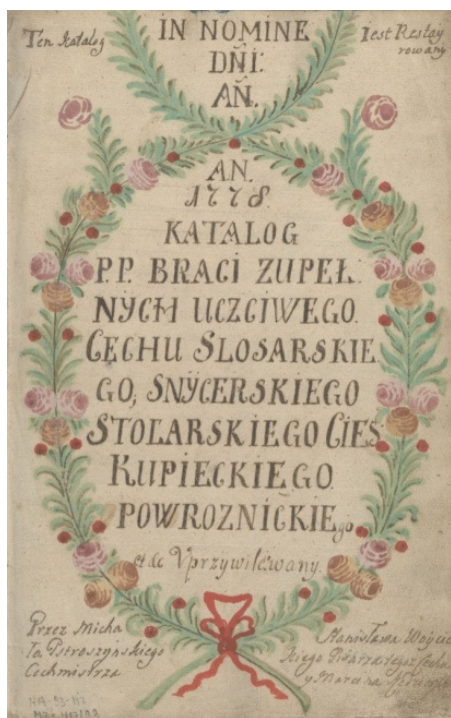 IN NOMINE
Ten Katalog
Iest Restay
rowany
DÑI:
AÑ.
A.N.
1778.
KATALOG
P.P. BRACI ZUPEŁ
NYCH UCZCIWEGO.
CĘCHU SLOSARSKIE
GO, SNYCERSKIEGO
STOLARSKIEGO CIES
KUPIECKIEGO.
POWROZNICKIEgo
et dc Vprzywilewany.
Przez Micha
ła Pstroszynskiego
Cechmistrza
Stanisława Woycic
kiego Pisarza tegoz Cechu
y Marcina